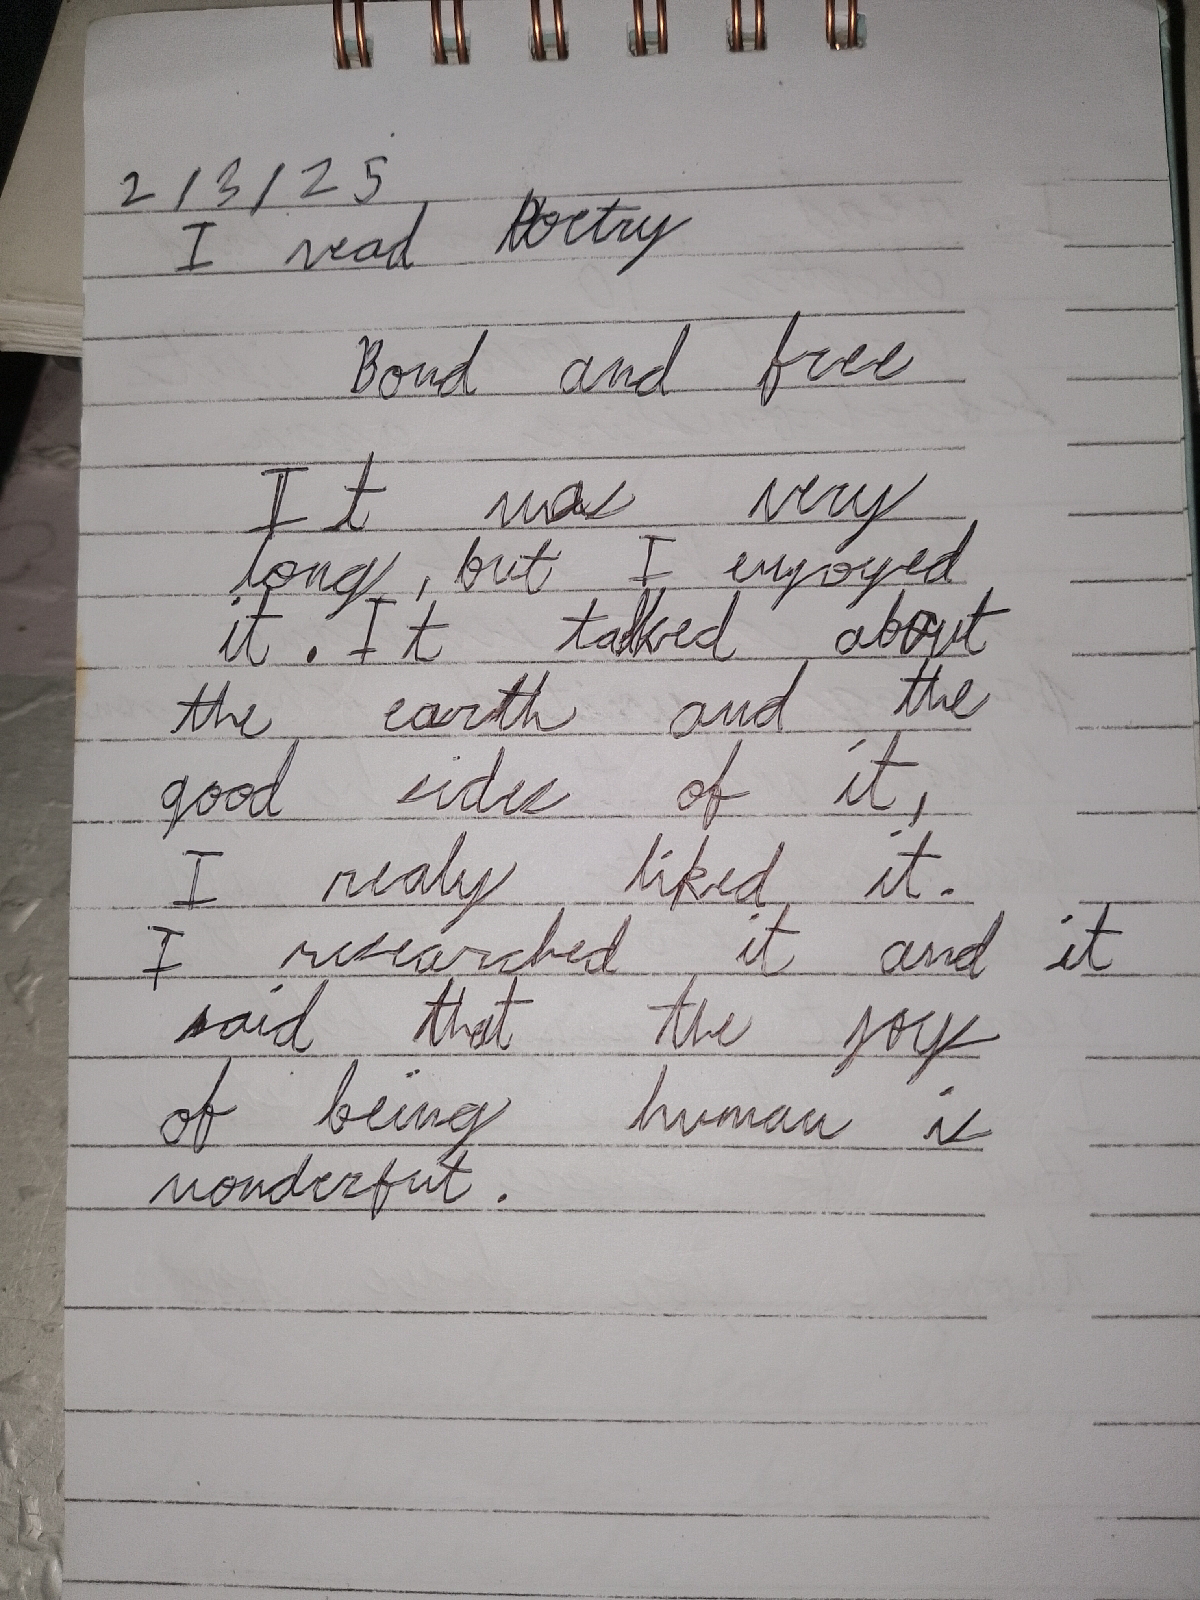 2/3/25
I read Poetry
Bond and free
It was very
long, but I enjoyed
it. It talked about
the earth and the
good sides of it,
I realy liked it.
I researched it and it
said that the joys
of being human is
wonderful.